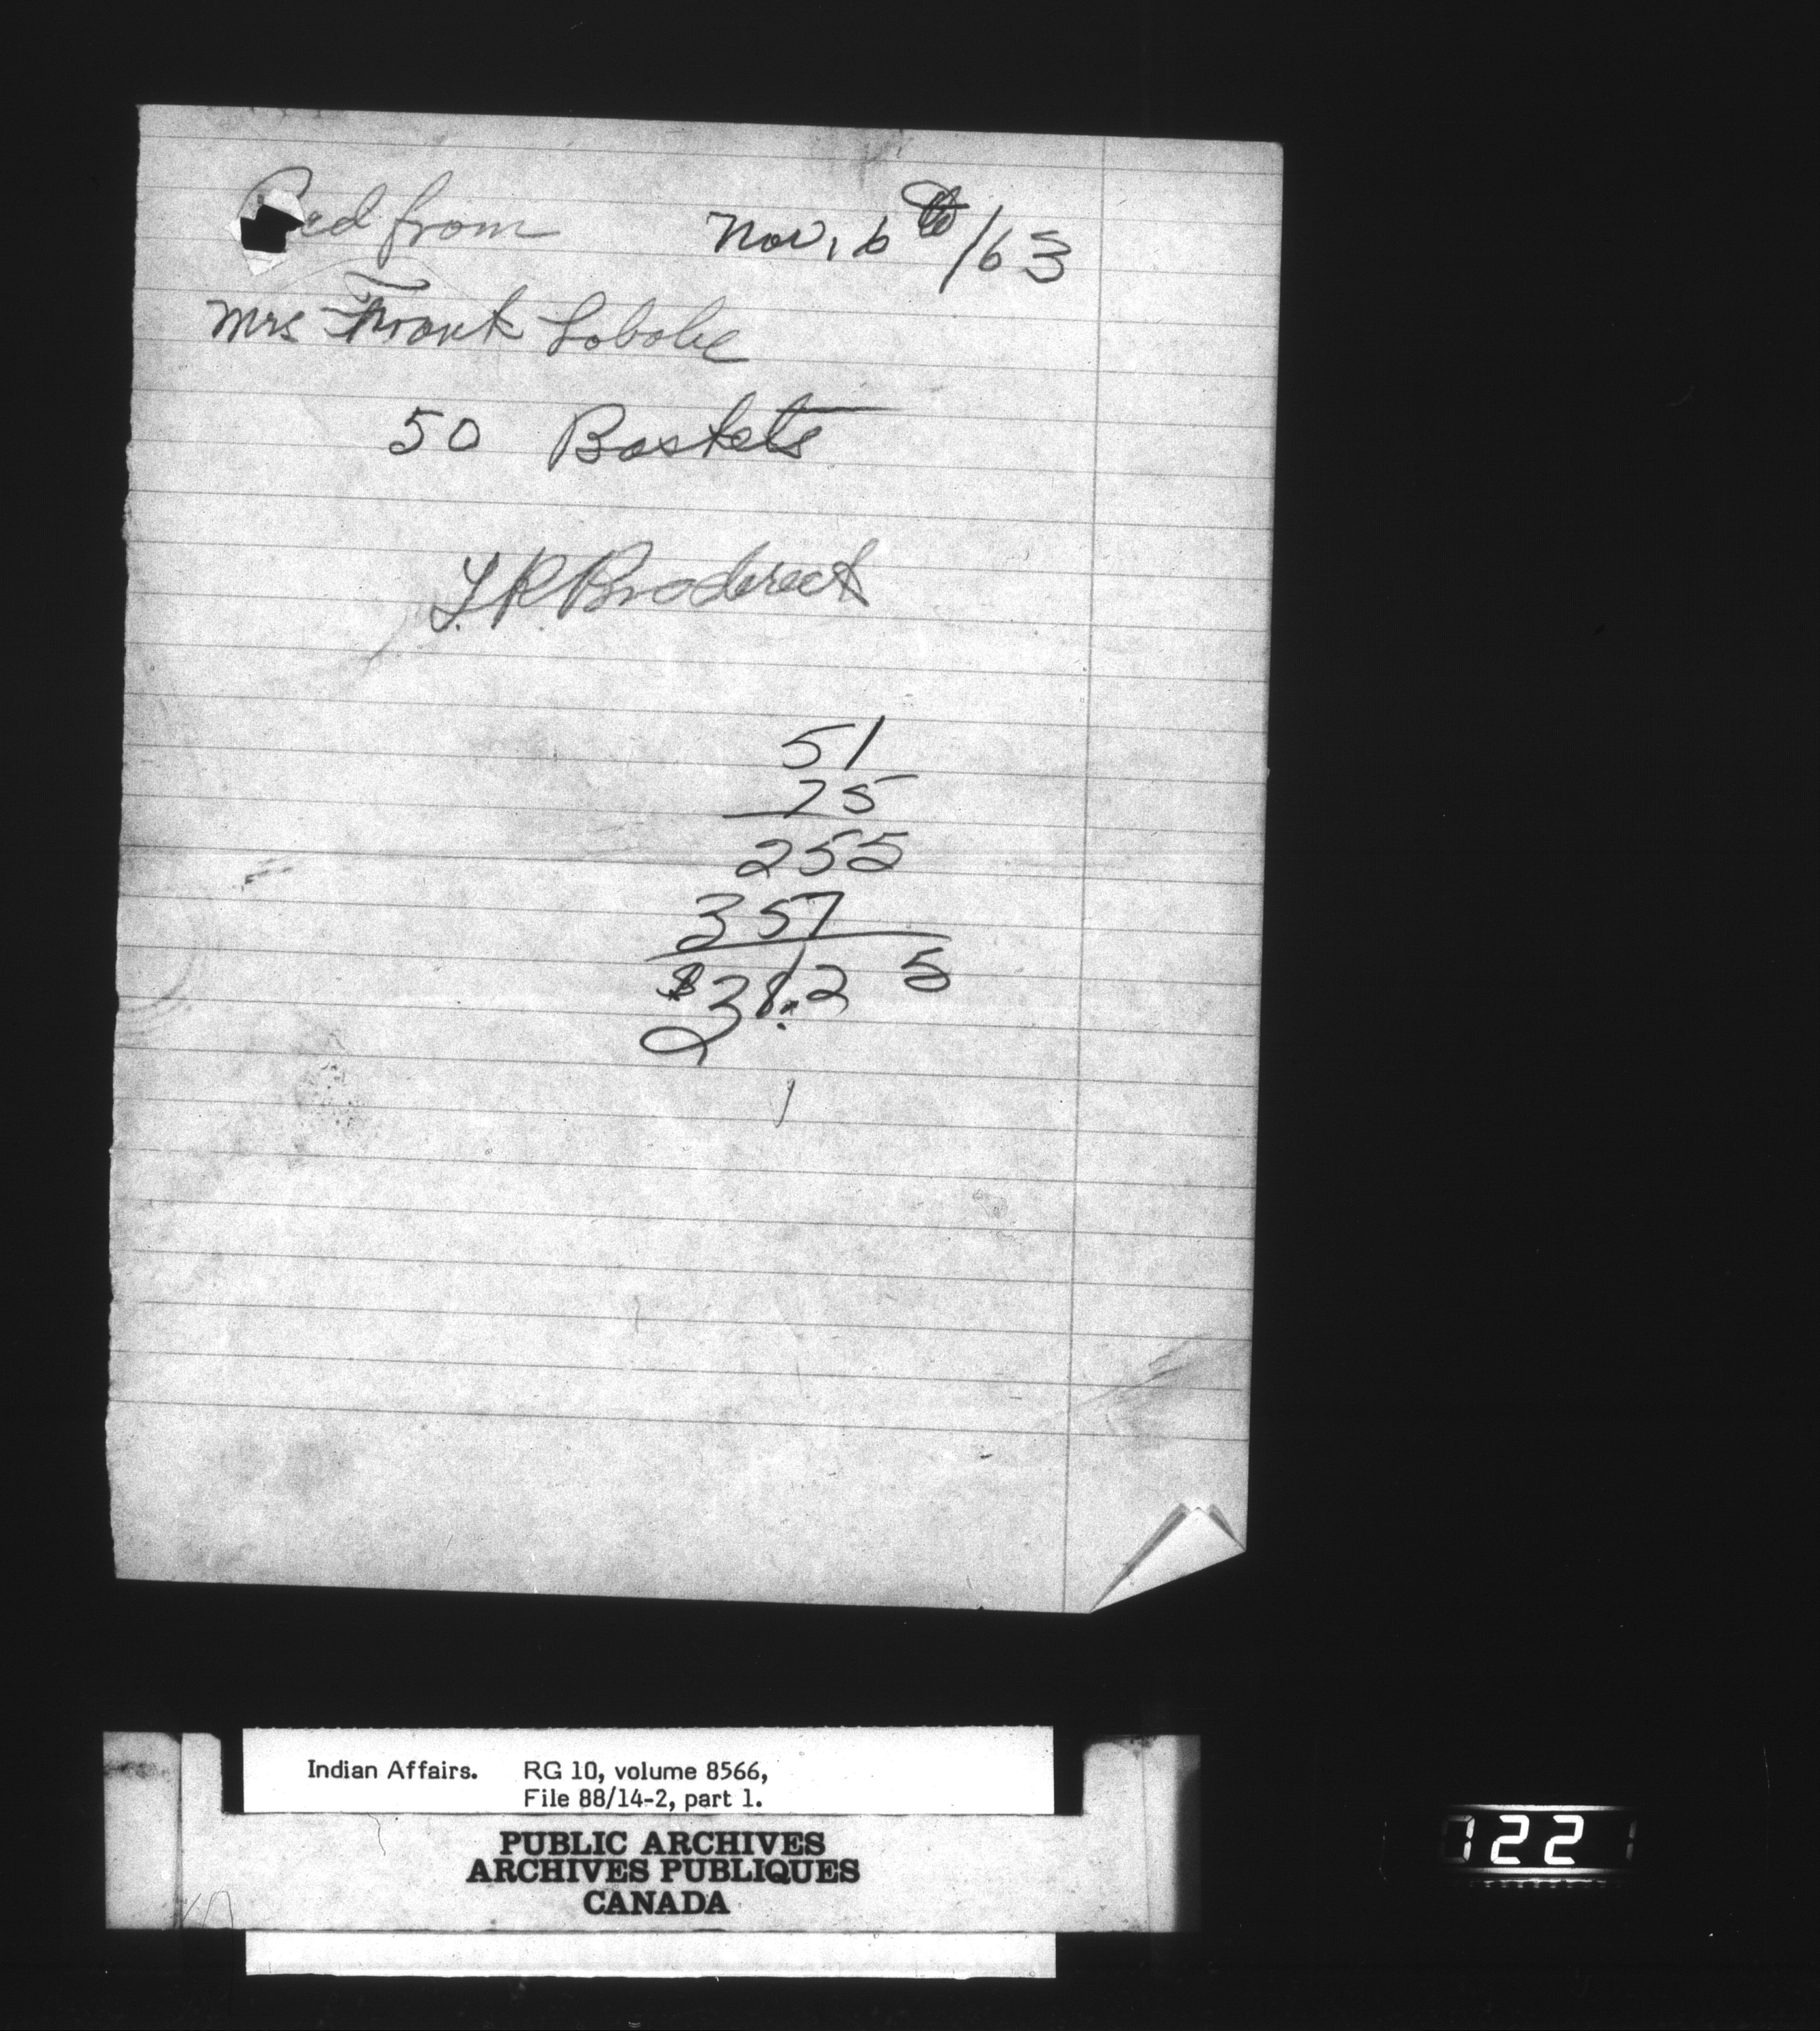 Recd from Nov, 6th/63
Mrs Frank Lobobe
50 Baskets
51
75
255
357
$38.25
Indian Affairs. RG 10, volume 8566,
File 88/14-2, part 1.
PUBLIC ARCHIVES
ARCHIVES PUBLIQUES
CANADA
1221